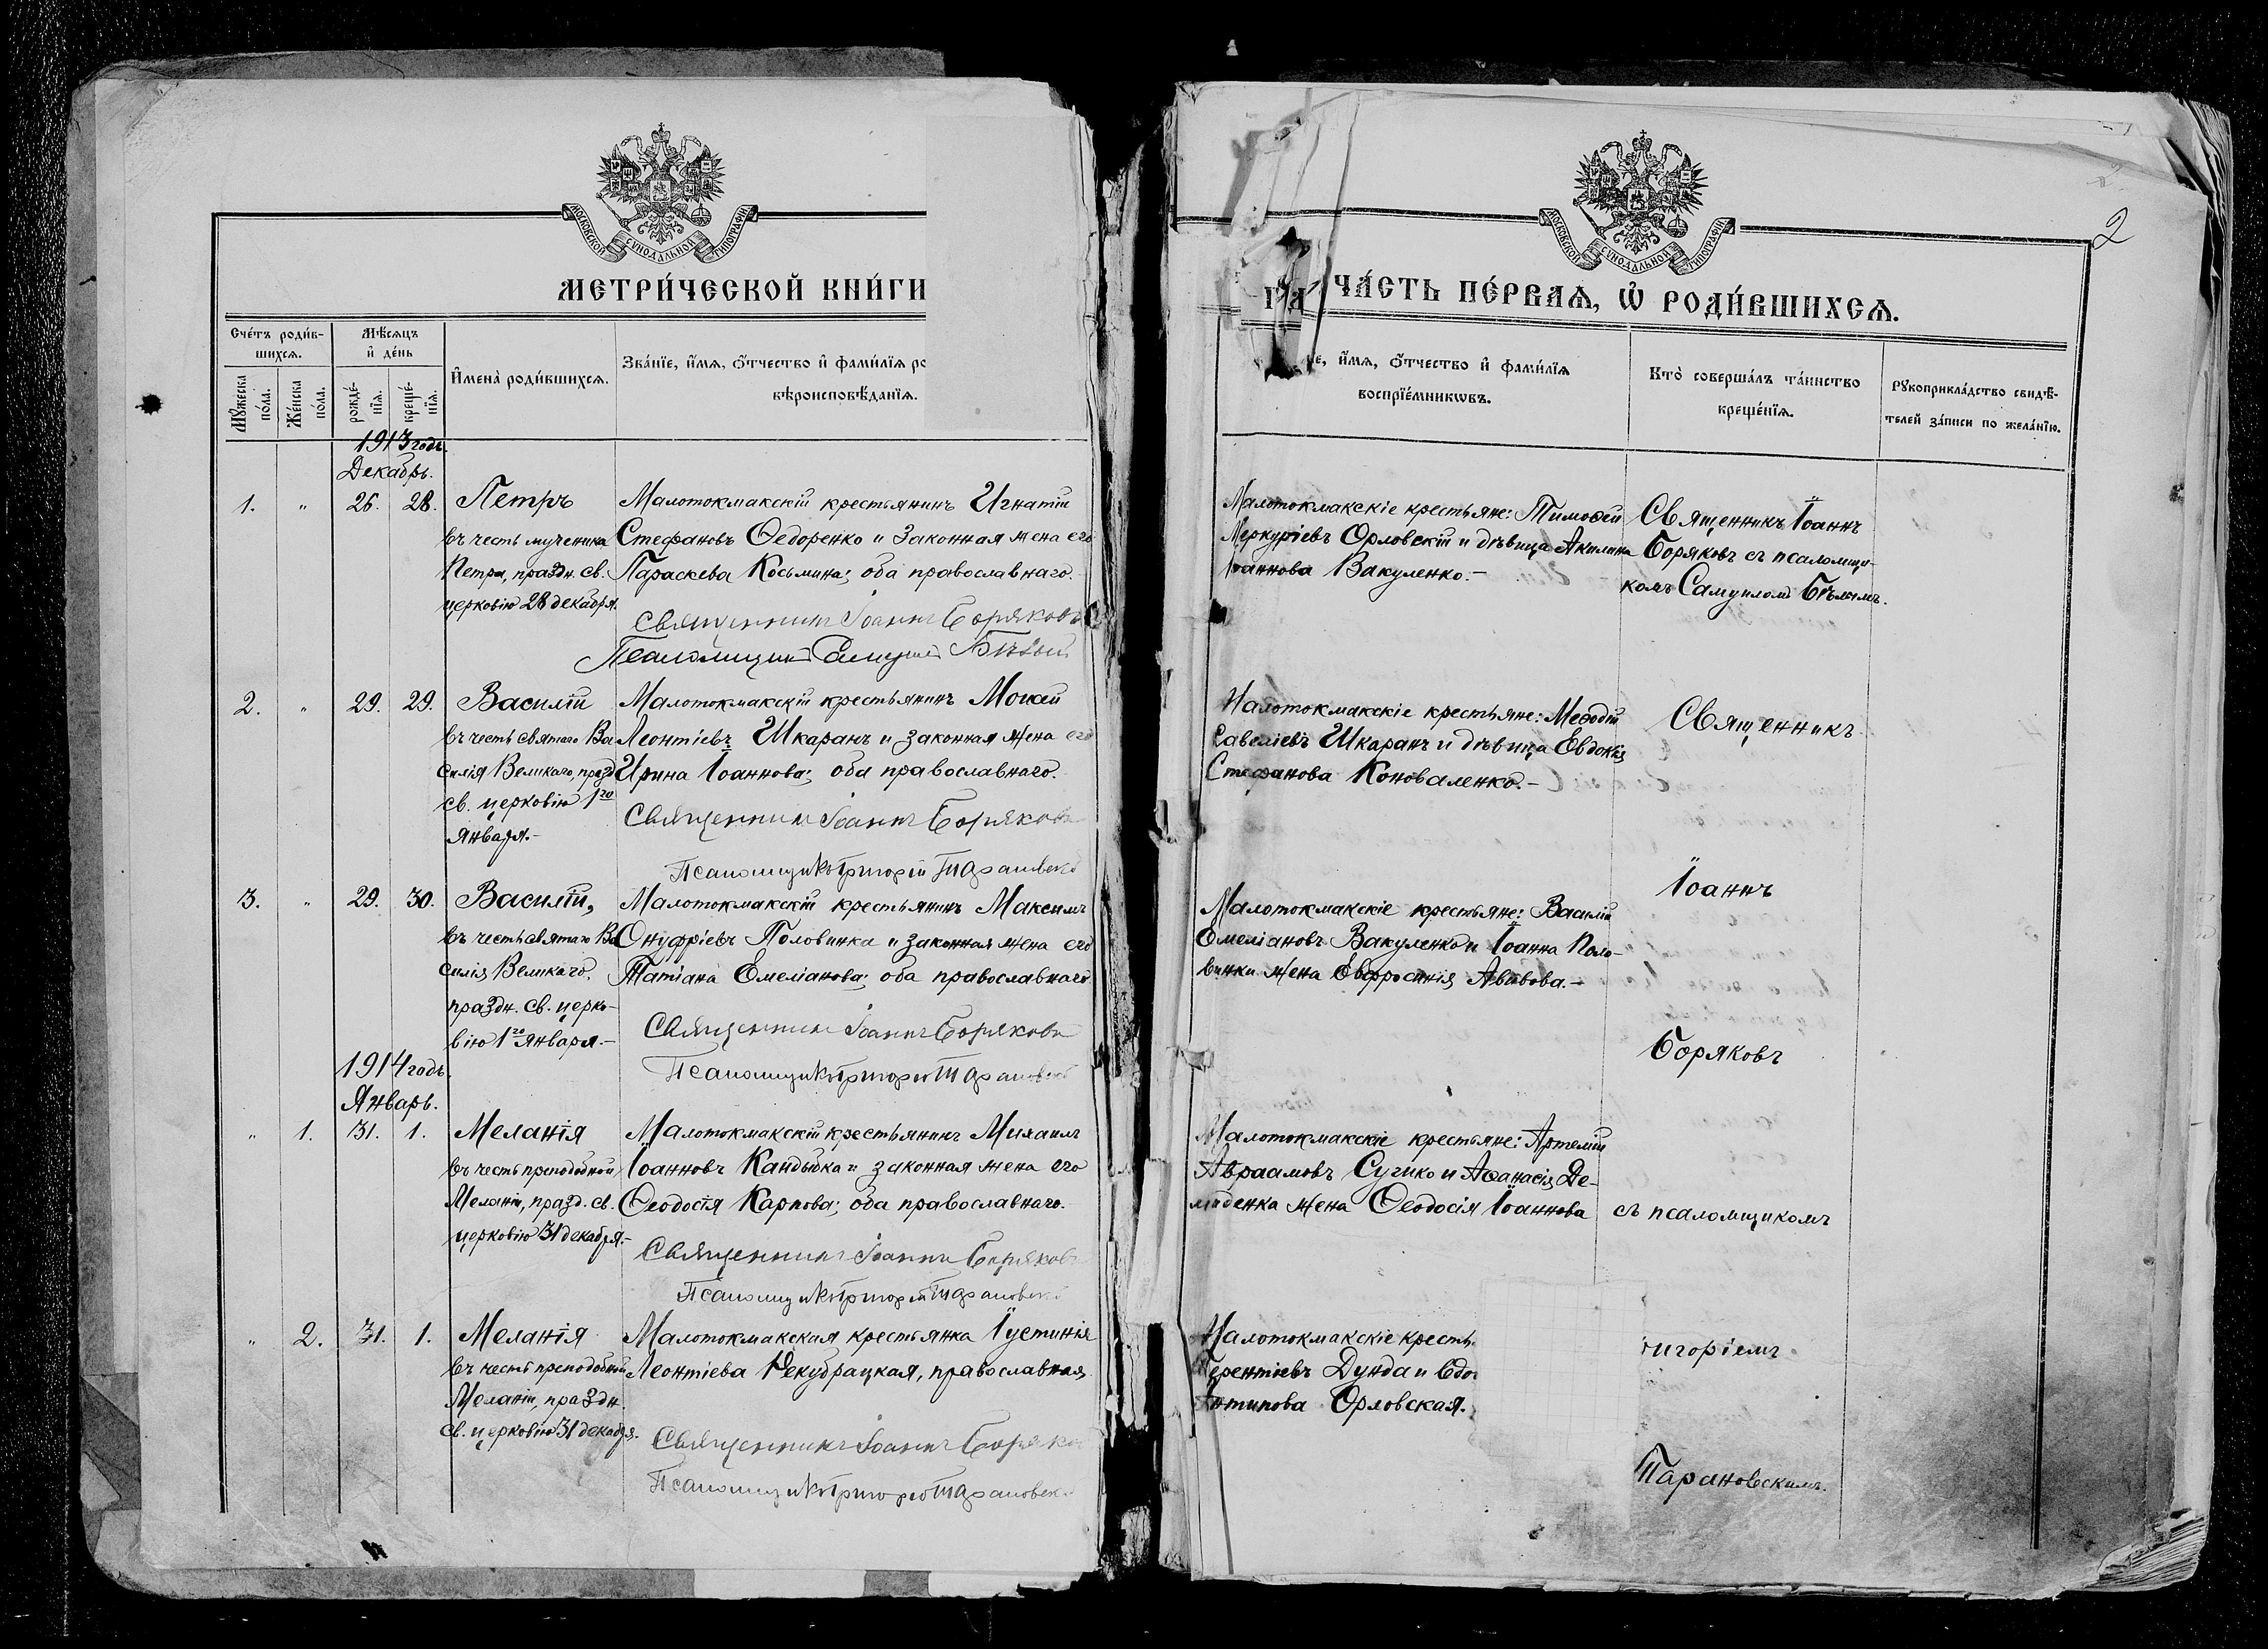 МОСКОВСКОЙ СѴНОДАЛЬНОЙ ТИПОГРАФІИ
МЕТРИ́ЧЕСКОЙ КНИ́ГИ
Сче́тъ роди́в-
шихсѧ.
Мѣ́сѧцъ
и҆ де́нь
И҆мена̀ роди́вшихсѧ.
Зва́нїе, и҆́мѧ, ѻ҆́тчество и҆ фами́лїѧ
вѣроисповѣ́данїѧ.
Мꙋ́жеска
по́ла.
Же́нска
по́ла.
рожде́-
нїѧ.
креще́-
нїѧ.
1913 годъ.
Декабрь.
1. " 26. 28. Петръ
въ честь мученика
Петра, праздн. св.
церковію 28 декабря.
Малотокмакскій крестьянинъ Игнатій
Стефановъ Ѳедоренко и законная жена его
Параскева Косьмина; оба православнаго.
Священникъ Іоаннъ Боряковъ
Псаломщикъ Самуилъ Бѣлый
2. " 29. 29. Василій
въ честь святаго Ва
силія Великаго, празд
св. церковію 1го
Января.-
Малотокмакскій крестьянинъ Мокей
Леонтіевъ Шкаранъ и законная жена его
Ирина Іоаннова; оба православнаго.
Священникъ Іоаннъ Боряковъ
Псаломщикъ Григорій Тарановскі
3. " 29. 30. Василій,
въ честь святаго Ва
силія Великаго,
праздн. св. церко-
вію 1го Января.-
Малотокмакскій крестьянинъ Максимъ
Онуфріевъ Половинка и законная жена его
Татіана Емеліанова; оба православнаго
Священникъ Іоаннъ Боряковъ
Псаломщикъ Григорій Тарановскі
1914 годъ.
Январь.
" 1. 31. 1. Меланія
въ честь преподобной
Меланіи, празд. св.
церковію 31 декабря.-
Малотокмакскій крестьянинъ Михаилъ
Іоанновъ Кандыбка и законная жена его
Ѳеодосія Карпова; оба православнаго.
Священникъ Іоаннъ Боряковъ
Псаломщикъ Григорій Тарановскі
" 2. 31. 1. Меланія
въ честь преподобной
Меланіи, праздн.
св. церковію 31 декабря.
Малотокмакская крестьянка Іустинія
Леонтіева Рекубрацкая, православная
Священникъ Іоаннъ Боряко
Псаломщикъ Григорій Тарановскі
2
МОСКОВСКОЙ СѴНОДАЛЬНОЙ ТИПОГРАФІИ
ЧА́СТЬ ПЕ́РВАѦ, Ѡ҆ РОДИ́ВШИХСѦ.
е, и҆́мѧ, ѻ҆́тчество и҆ фами́лїѧ
воспрїе́мникѡвъ.
Кто̀ соверша́лъ та́инство
креще́нїѧ.
Рꙋкоприкла́дство свидѣ́-
телей за́писи по жела́нїю.
Малотокмакскіе крестьяне: Тимоѳей
Меркуріевъ Орловскій и дѣвица Акилина
Іоаннова Вакуленко.-
Священникъ Іоаннъ
Боряковъ съ псаломщи-
комъ Самуиломъ Бѣлымъ.
Малотокмакскіе крестьяне: Меѳодій
Савеліевъ Шкаранъ и дѣвица Евдокія
Стефанова Коноваленко.-
Священникъ
Іоаннъ
Малотокмакскіе крестьяне: Василій
Емеліановъ Вакуленко и Іоанна Поло-
винки жена Евфросинія Авивова.-
Боряковъ
Малотокмакскіе крестьяне: Артемій
Авраамовъ Сучико и Аѳанасія Де-
миденка жена Ѳеодосія Іоаннова
съ псаломщикомъ
Малотокмакскіе кресть
Терентіевъ Дунда и Евдо
Антипова Орловская.
игоріемъ
Тарановскимъ.